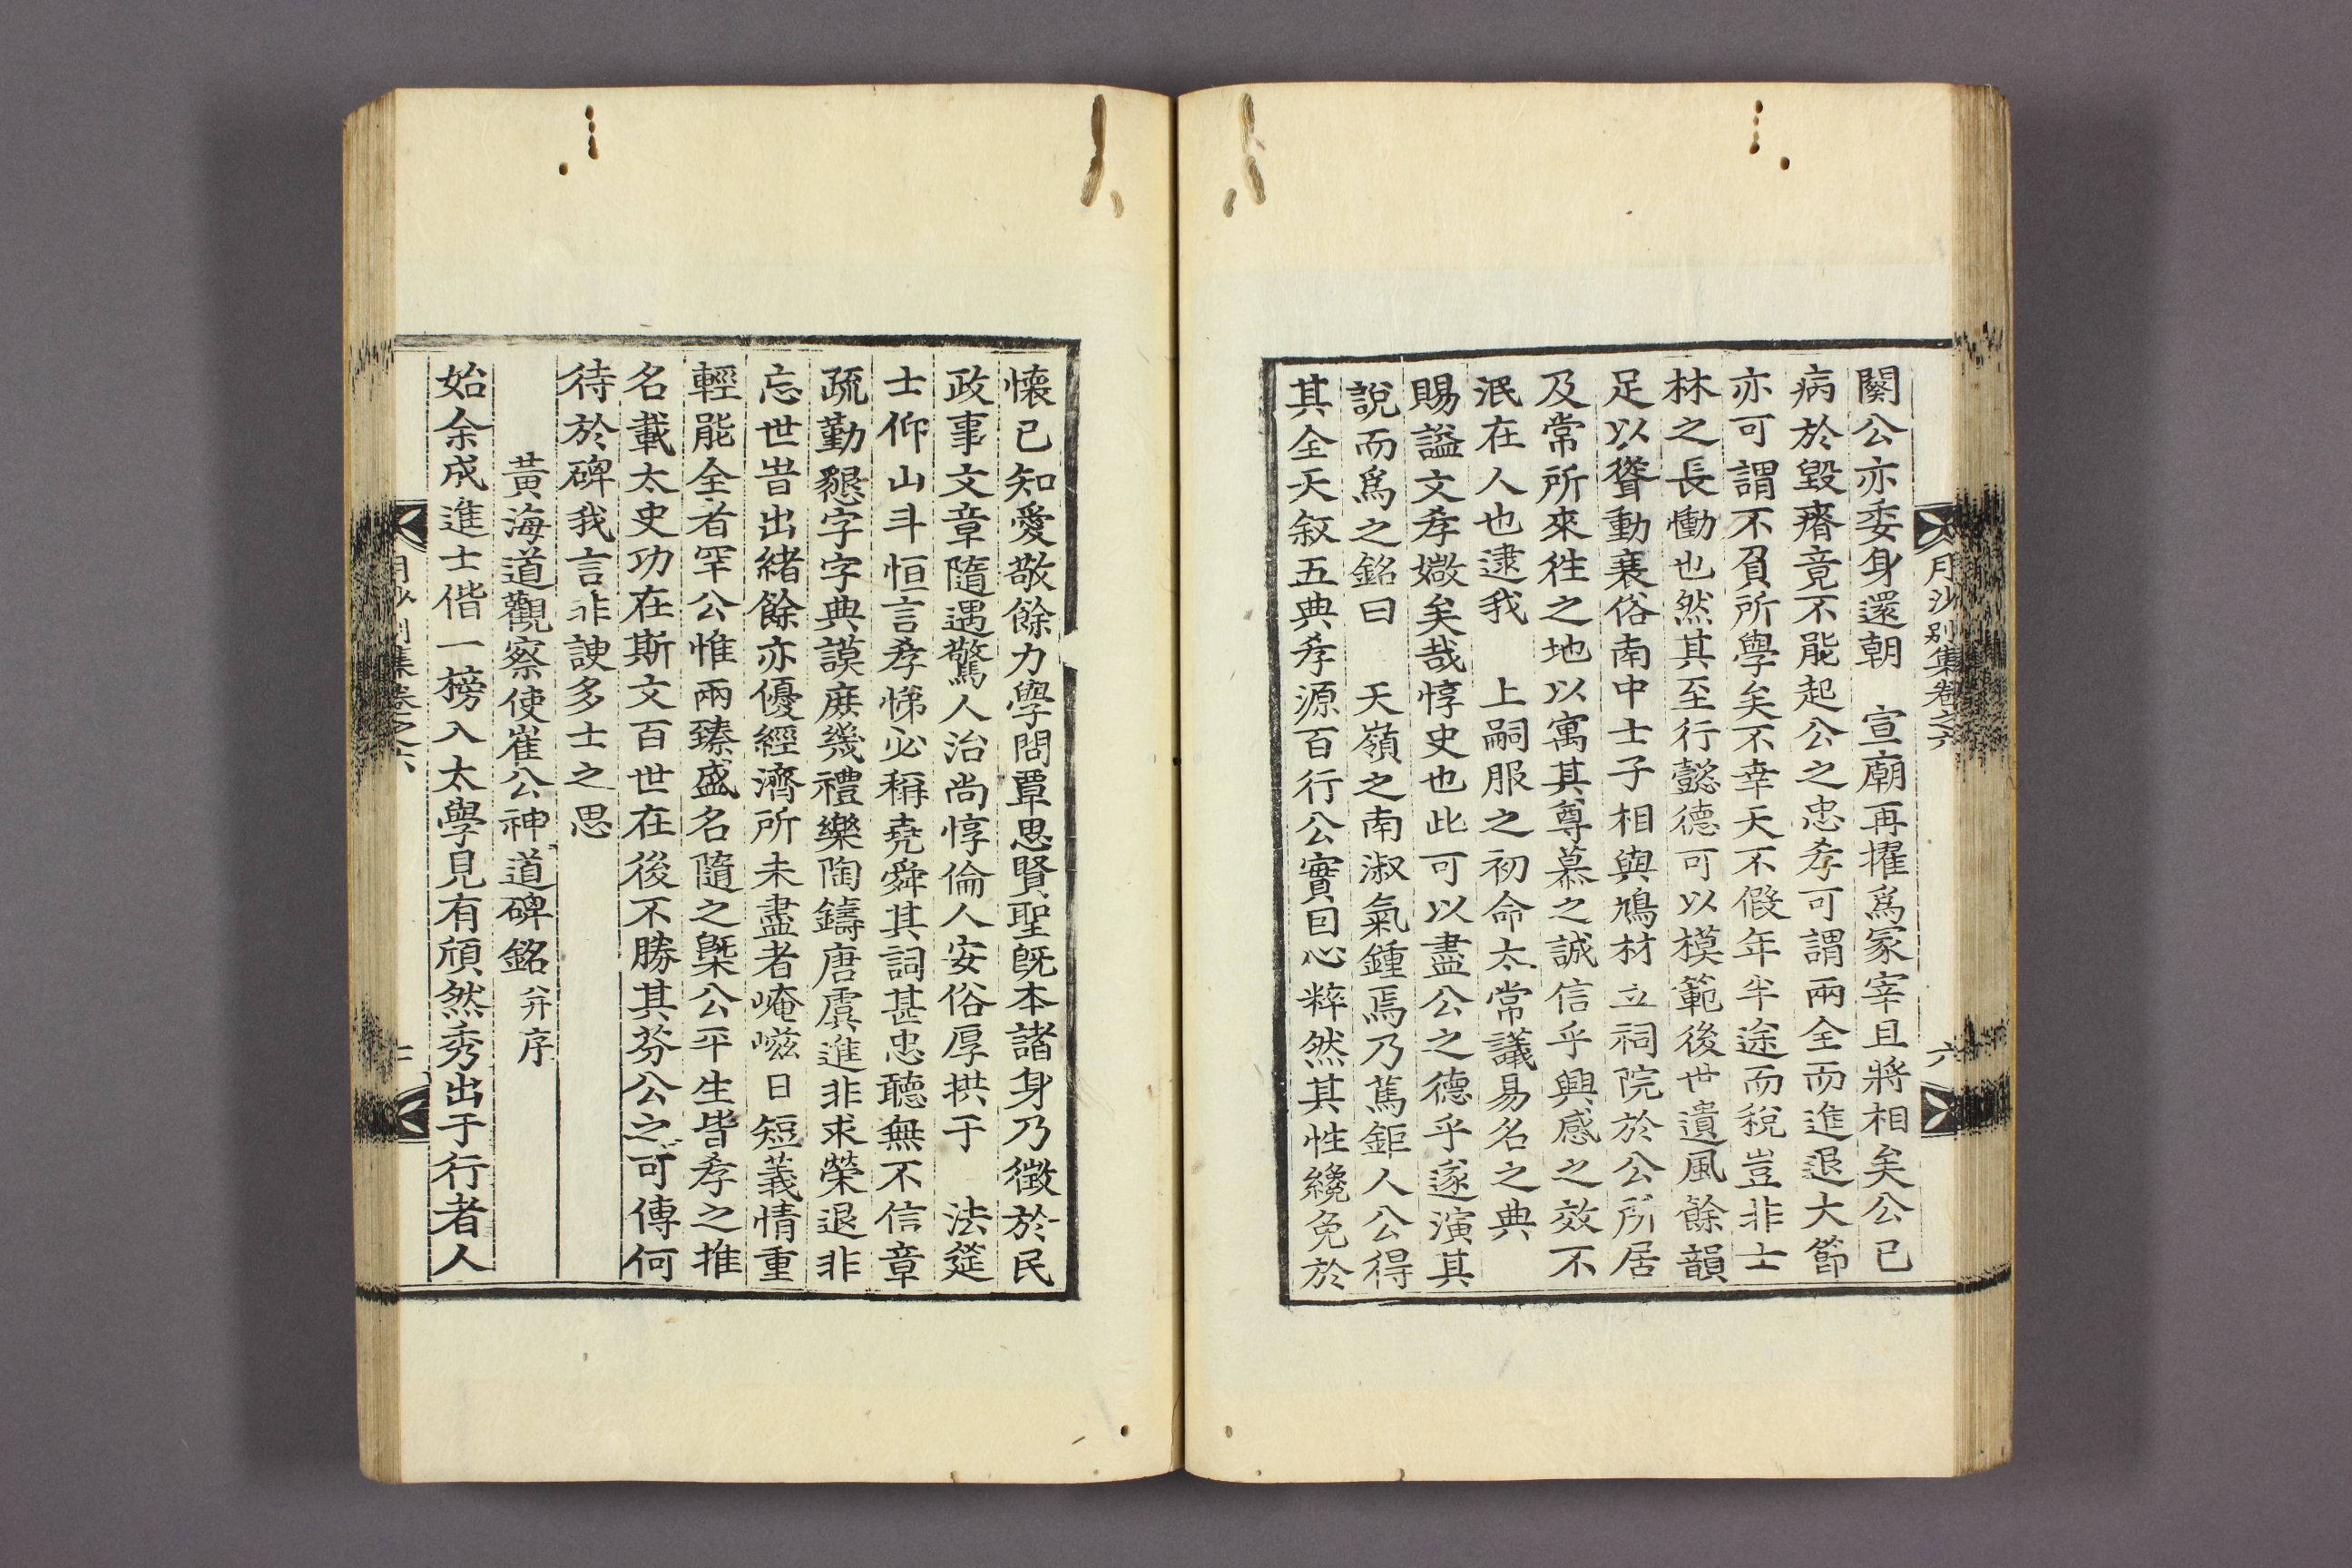 月沙別集卷之六
六
闋公亦委身還朝　宣廟再擢爲冢宰且將相矣公已
病於毀瘠竟不能起公之忠孝可謂兩全而進退大節
亦可謂不負所學矣不幸天不假年半途而稅豈非士
林之長慟也然其至行懿德可以模範後世遺風餘韻
足以聳動衰俗南中士子相與鳩材立祠院於公所居
及常所來往之地以寓其尊慕之誠信乎興感之效不
泯在人也逮我　上嗣服之初命太常議易名之典
賜謚文孝媺矣哉惇史也此可以盡公之德乎遂演其
說而爲之銘曰　天嶺之南淑氣鍾焉乃篤鉅人公得
其全天叙五典孝源百行公實因心粹然其性纔免於
懷已知愛敬餘力學問覃思賢聖旣本諸身乃徵於民
政事文章隨遇驚人治尚惇倫人安俗厚拱于　法筵
士仰山斗恒言孝悌必稱堯舜其詞甚忠聽無不信章
疏勤懇字字典謨庶幾禮樂陶鑄唐虞進非求榮退非
忘世昔出緒餘亦優經濟所未盡者崦嵫日短義情重
輕能全者罕公惟兩臻盛名隨之槩公平生皆孝之推
名載太史功在斯文百世在後不勝其芬公之可傳何
待於碑我言非諛多士之思
黃海道觀察使崔公神道碑銘 幷序
始余成進士偕一榜入太學見有頎然秀出于行者人
月沙別集卷之六